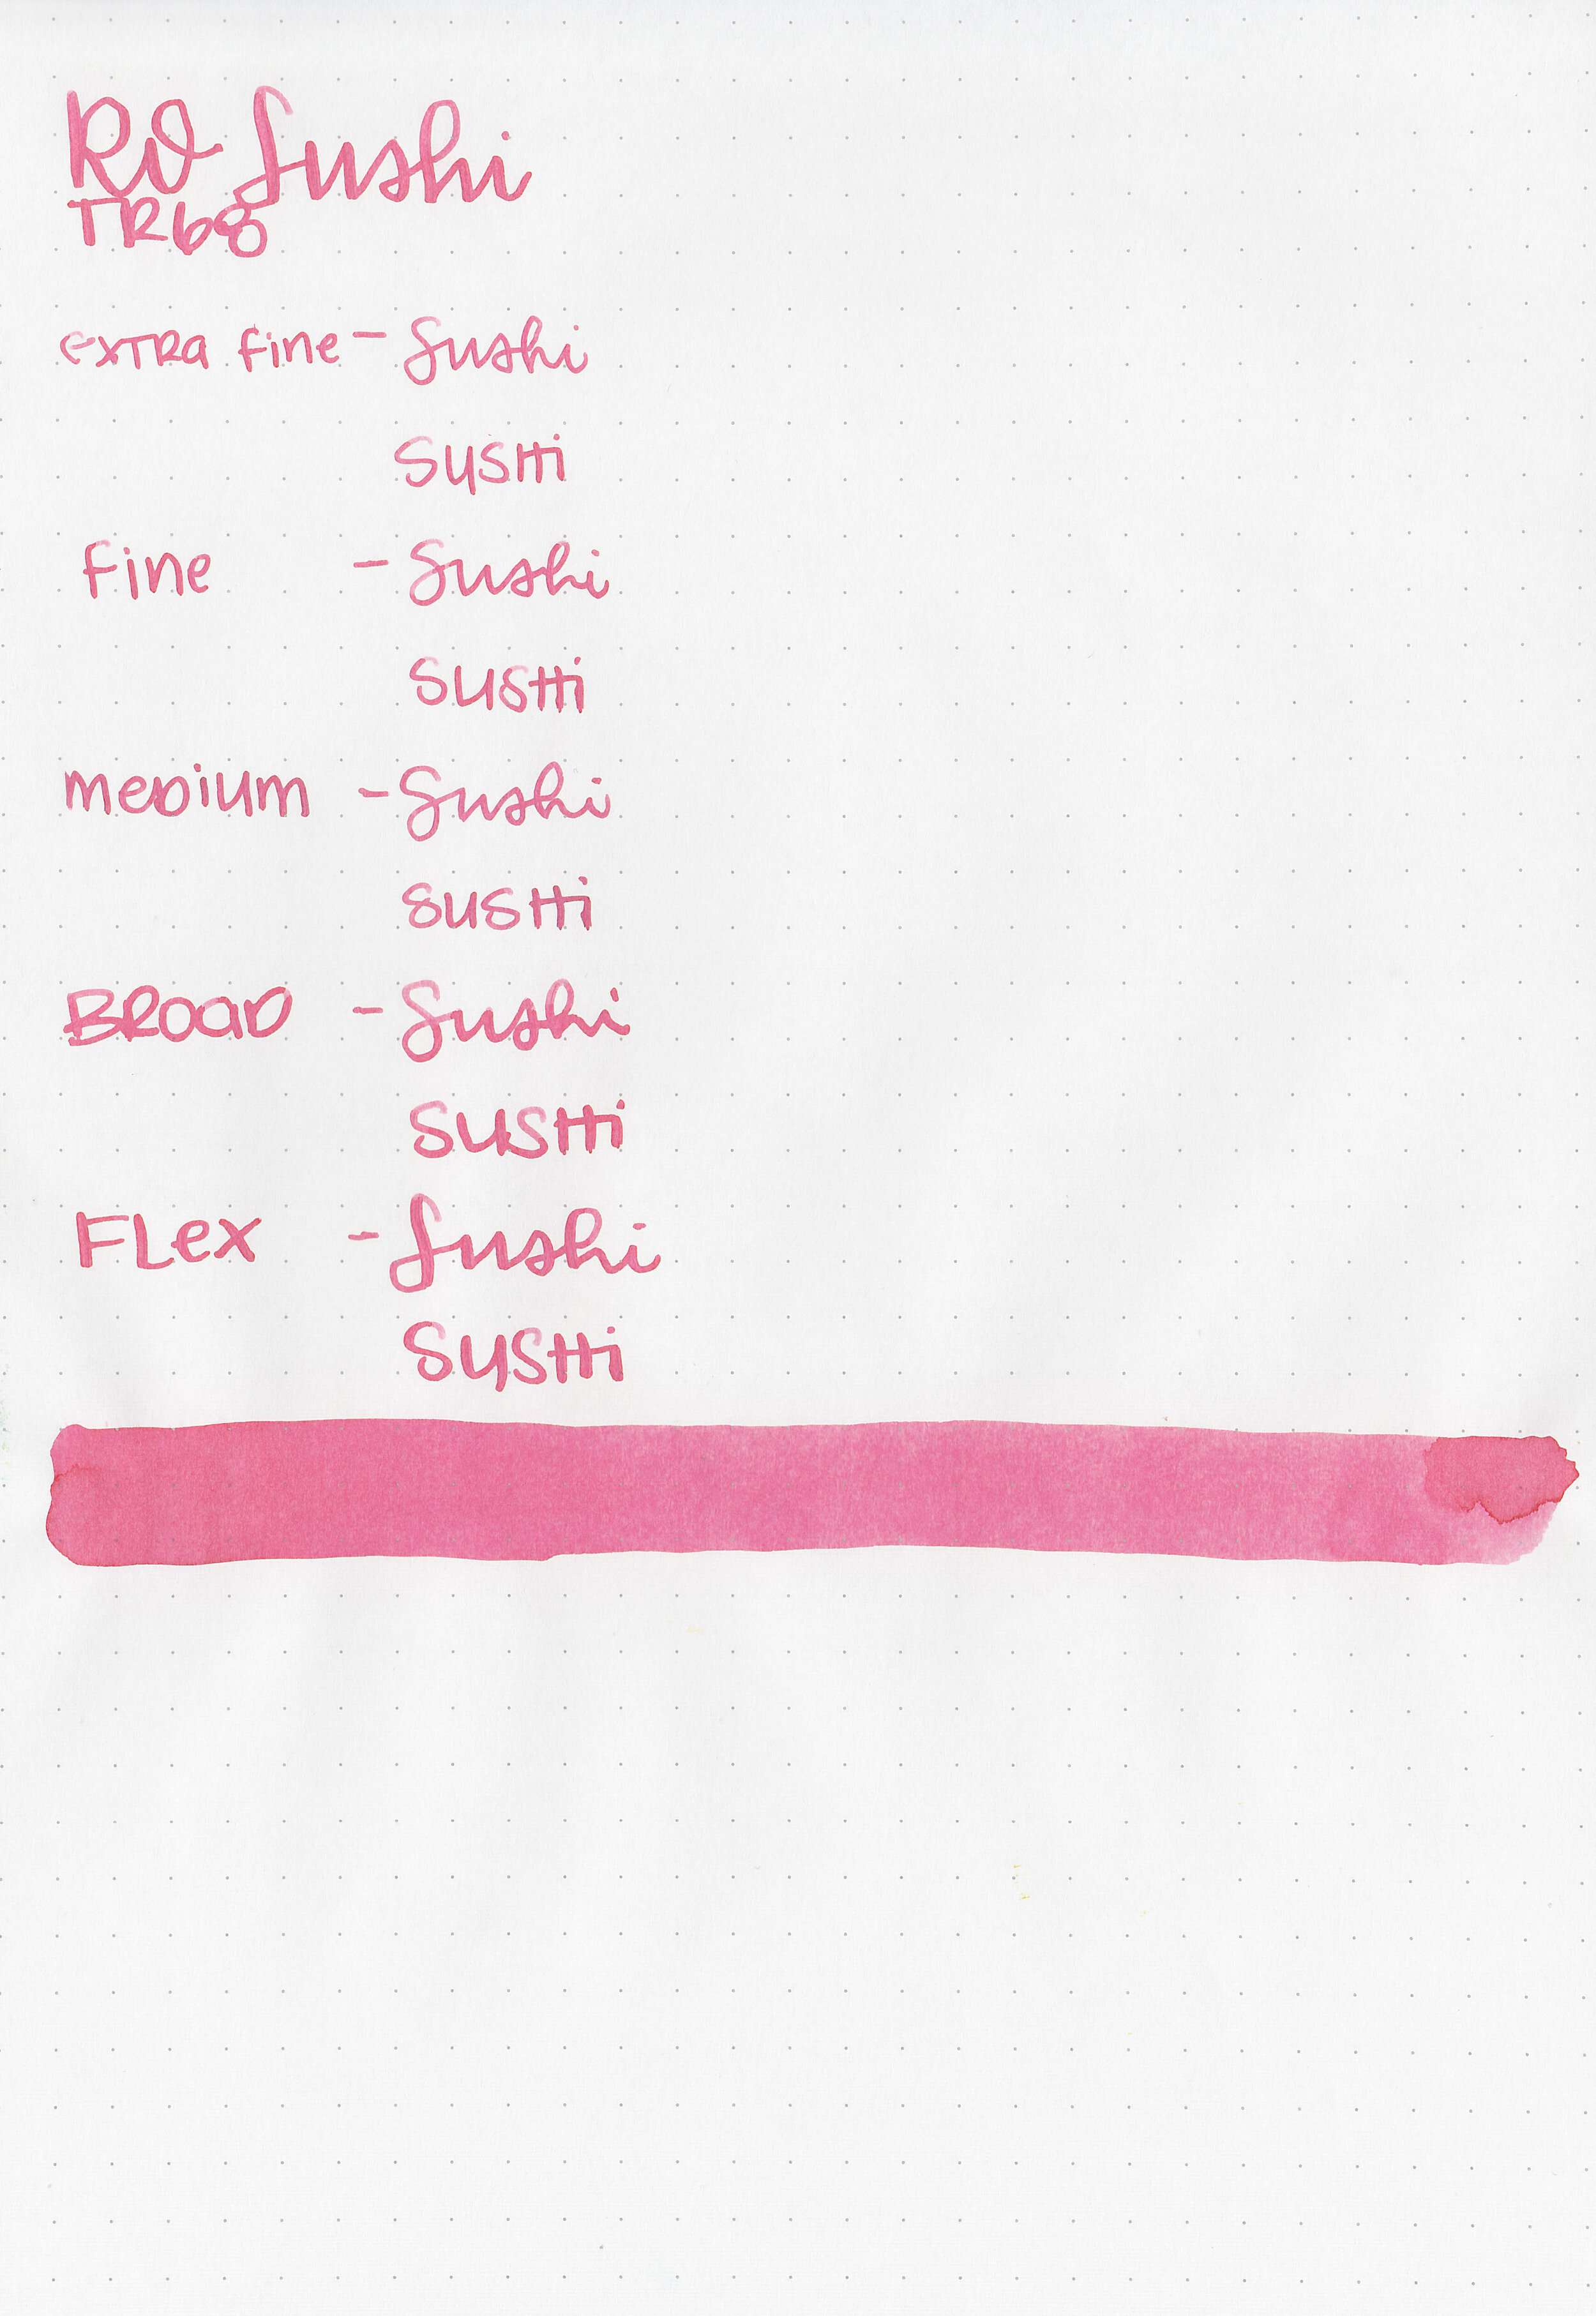 RO Sushi
TR68
extra fine - Sushi
SUSHi
fine - Sushi
SUSHi
medium - Sushi
SUSHi
BROAD - Sushi
SUSHi
FLex - Sushi
SUSHi